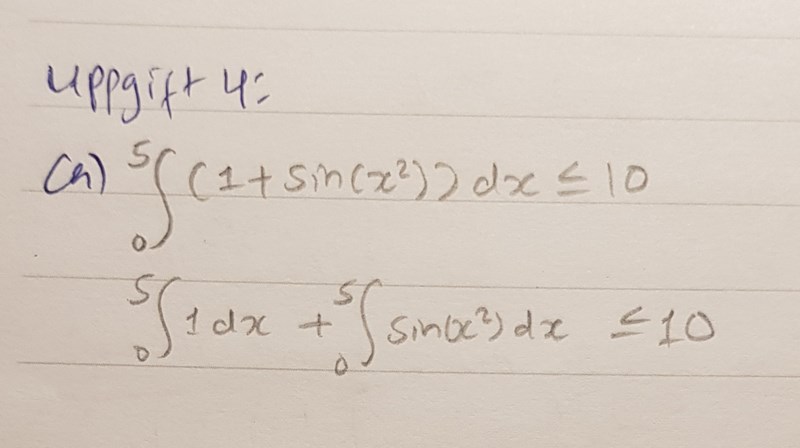 Uppgift 4:
(a) ∫₀⁵ (1 + sin(x²)) dx ≤ 10
∫₀⁵ 1 dx + ∫₀⁵ sin(x²) dx ≤ 10